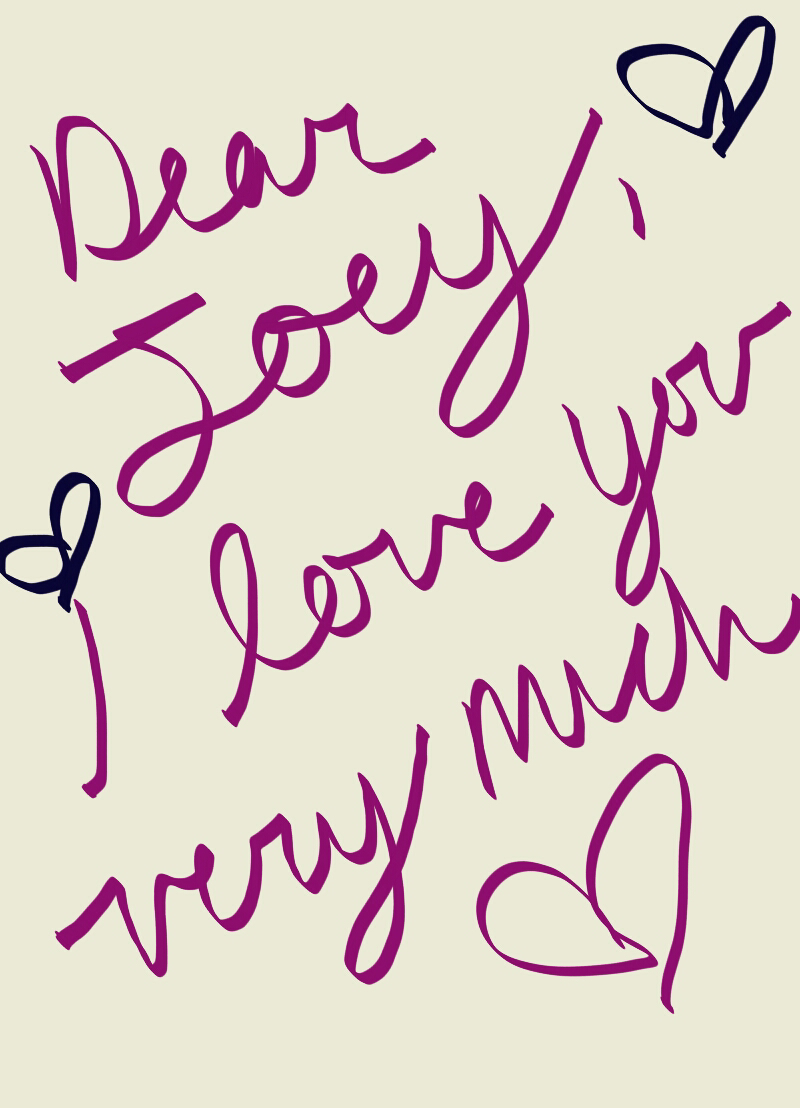 Dear
Joey,
I love you
very much